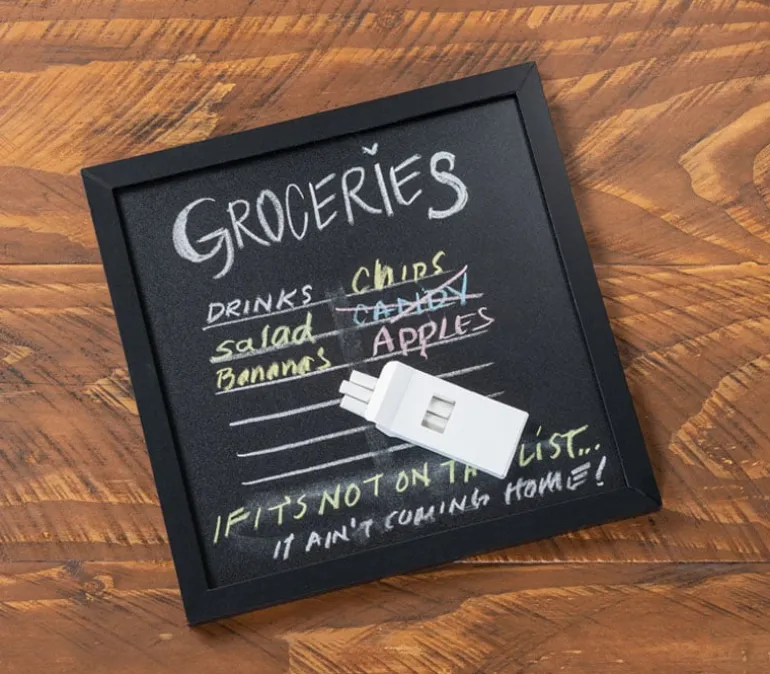 GROCERIES
DRINKS
Salad
Bananas
Chips
CANDY
APPLES
IF IT'S NOT ON LIST...
IT AIN'T COMING HOME!